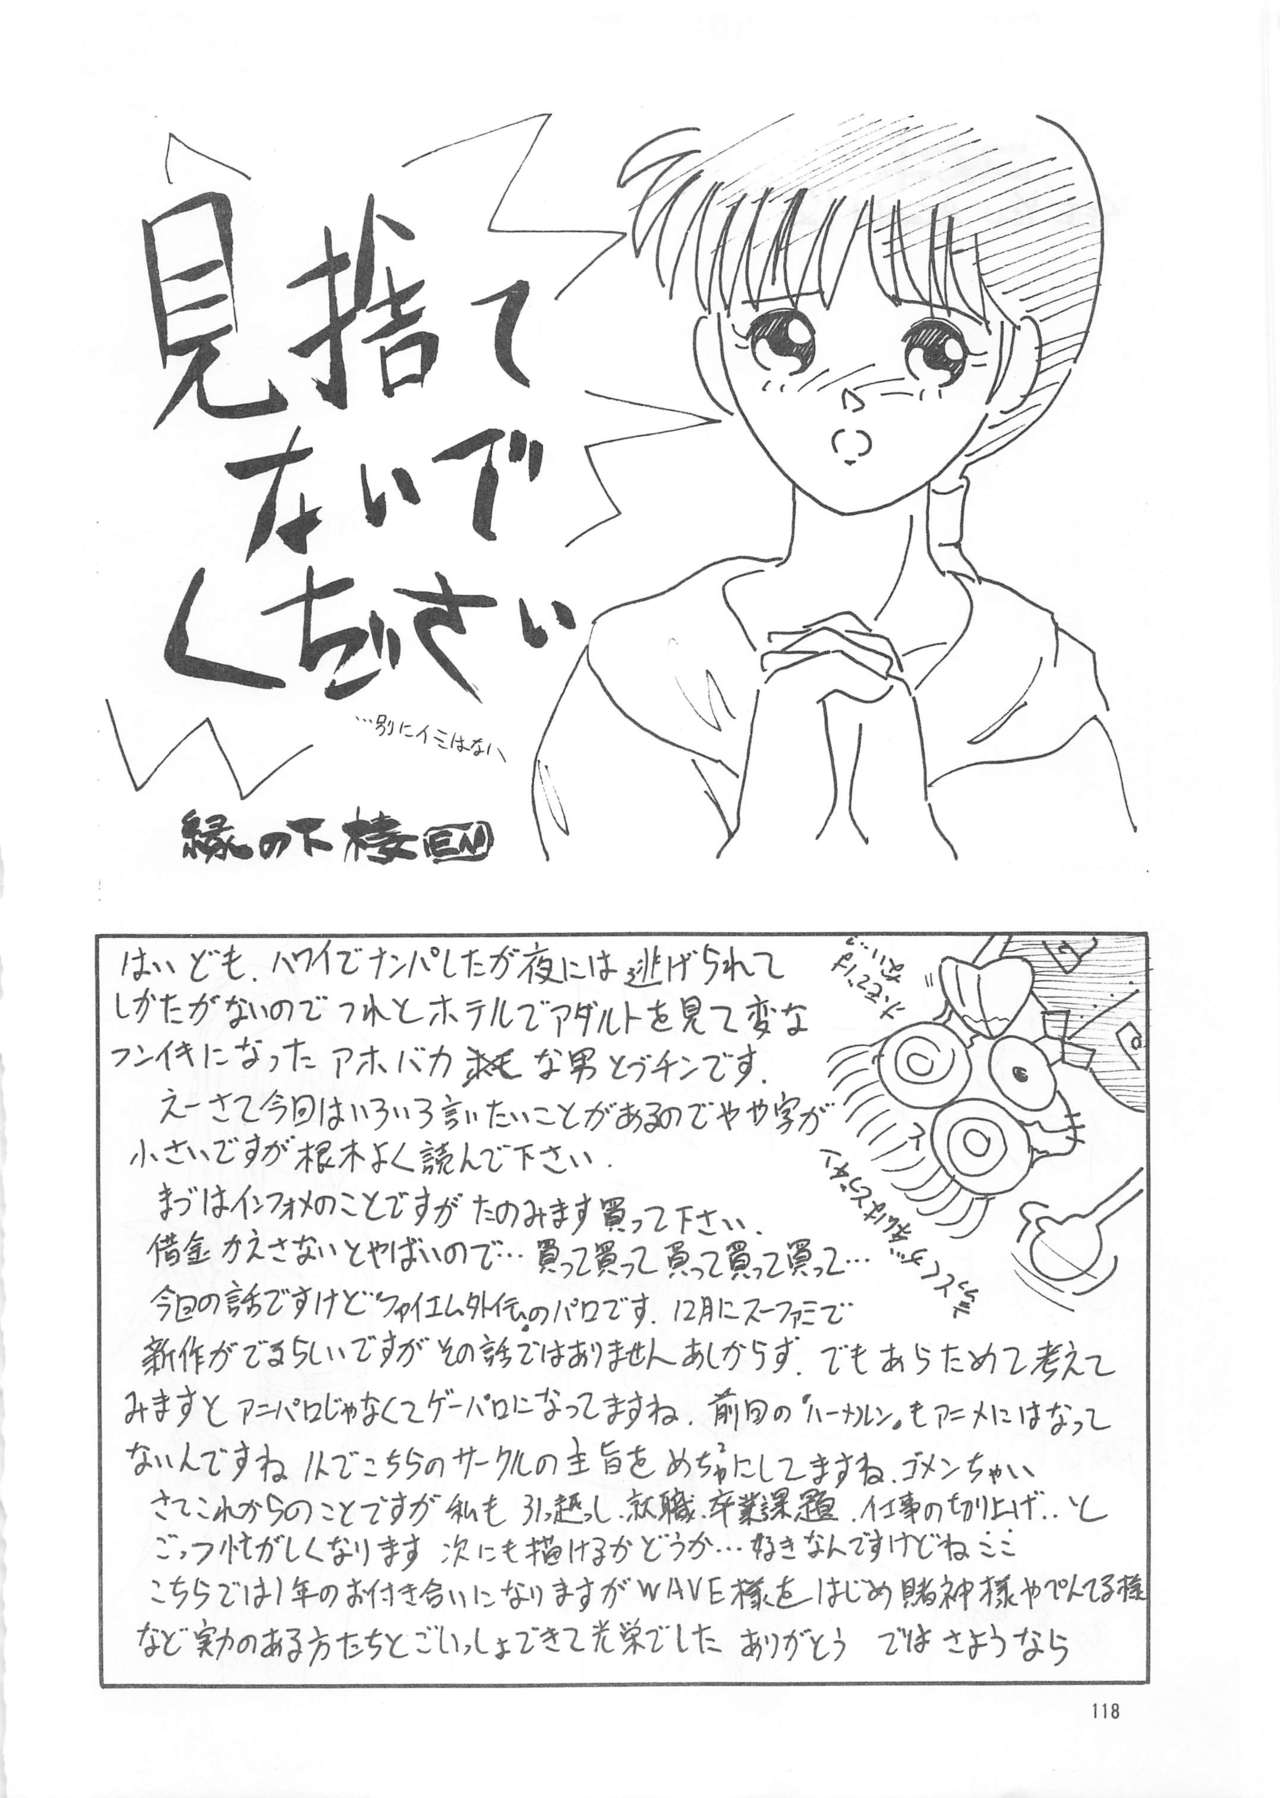 見捨て
ないで
ください
…別にイミはない
縁の下 棲 EN
はいども、ハワイでナンパしたが夜には逃げられて
しかたがないのでつれとホテルでアダルトを見て変な
フンイキになったアホバカ な男とうチンです.
えーさて今回はいろいろ言いたいことがあるのでやや字が
小さいですが根木よく読んで下さい.
まづはインフォメのことですが たのみます買って下さい.
借金かえさないとやばいので…買って買って買って買って買って…
今回の話ですけど"ファイエム外伝"のパロです. 12月にスーファミで
新作がでるらしいですがその話ではありませんあしからず. でもあらためて考えて
みますとアニパロじゃなくてゲーパロになってますね. 前回の"ハーメルン"もアニメにはなって
ないんですね んでこちらのサークルの主旨をめちゃ²にしてますね.ゴメンちゃい
さてこれからのことですが私も 引っ越し.就職.卒業課題.仕事の切り上げ..と
ごっつ忙がしくなります 次にも描けるかどうか…好きなんですけどね…
こちらでは1年のお付き合いになりますがWAVE様をはじめ賭神様やぺんてる様
など実力のある方たちとごいっしょできて光栄でした ありがとう ではさようなら
118